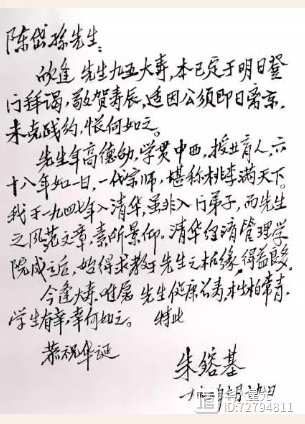 陈岱孙先生：
欣逢 先生九五大寿，本已定于明日登
门拜谒，敬贺寿辰，适因公须即日离京，
未克践约，怅何如之。
先生年高德劭，学贯中西，授业育人，六
十八年如一日，一代宗师，堪称桃李满天下。
我于一九四七年入清华，虽非入门弟子，而先生
之风范文章，素所景仰。清华经济管理学
院成立后，始得求教于先生之机缘，得益良多。
今逢大寿，唯愿 先生健康长寿，松柏常青，
学生有幸，幸何如之。 特此
恭祝华诞
朱镕基
ID:72794811